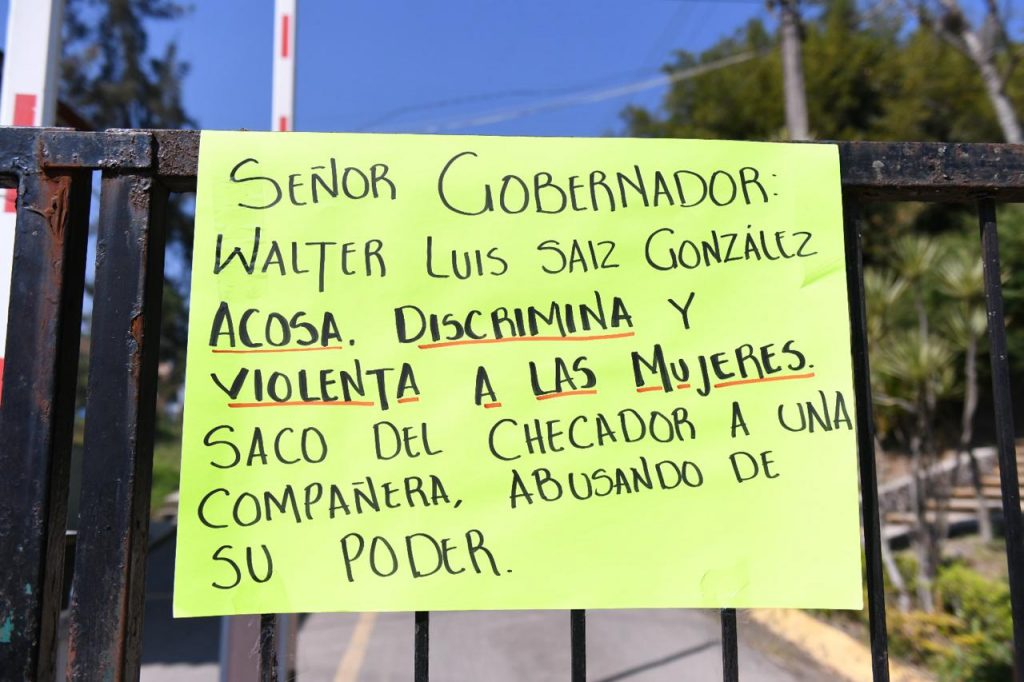 SEÑOR GOBERNADOR:
WALTER LUIS SAIZ GONZÁLEZ
ACOSA. DISCRIMINA Y
VIOLENTA A LAS MUJERES.
SACO DEL CHECADOR A UNA
COMPAÑERA, ABUSANDO DE
SU PODER.